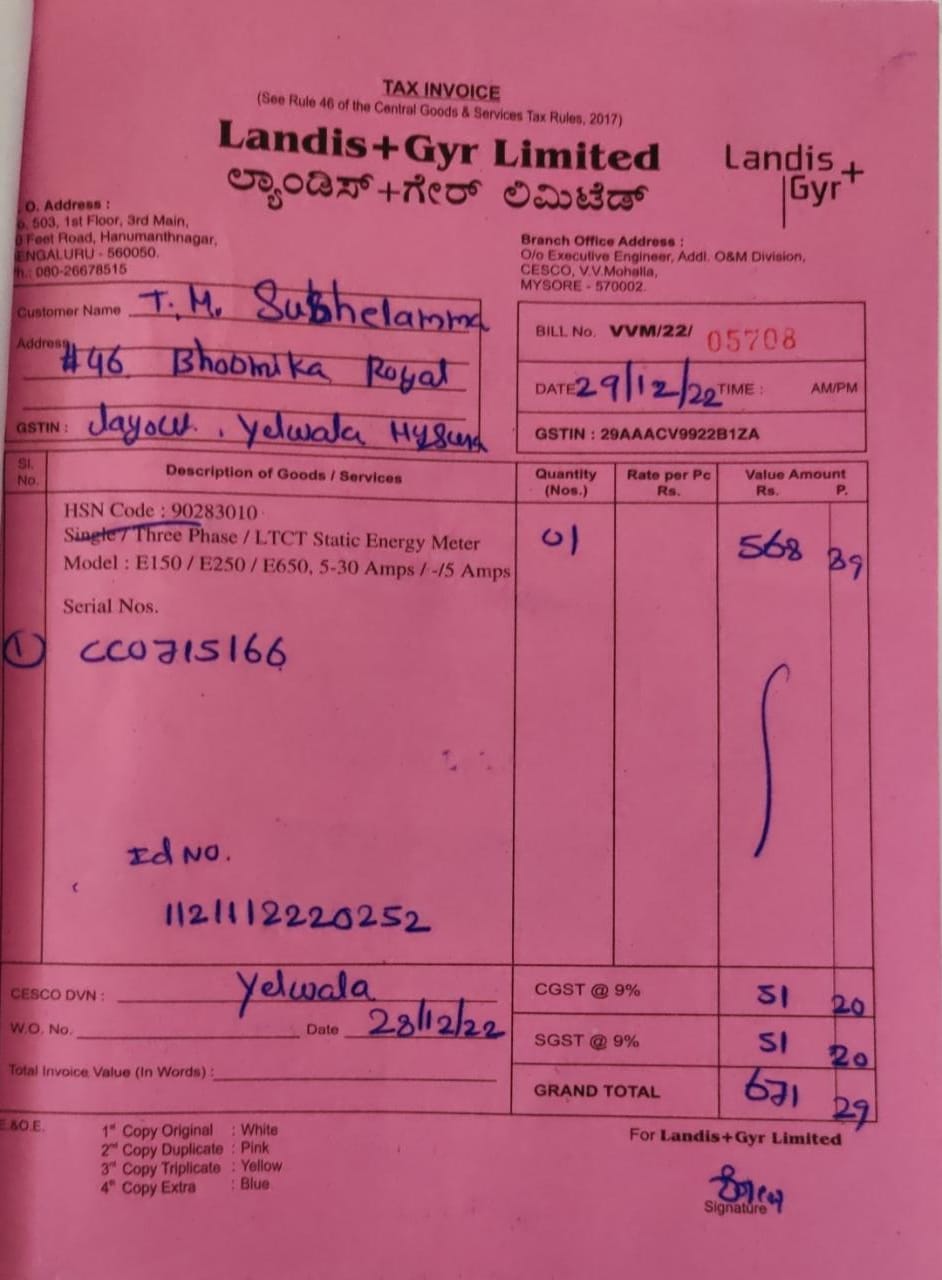 TAX INVOICE
(See Rule 46 of the Central Goods & Services Tax Rules, 2017)
Landis+Gyr Limited
ಲ್ಯಾಂಡಿಸ್+ಗೇರ್ ಲಿಮಿಟೆಡ್
Landis+
Gyr
O. Address :
503, 1st Floor, 3rd Main,
Feet Road, Hanumanthnagar,
ENGALURU - 560050.
h.: 080-26678515
Branch Office Address :
O/o Executive Engineer, Addl. O&M Division,
CESCO, V.V.Mohalla,
MYSORE - 570002.
Customer Name T. M.
Address #46 Bhoomika Royal
GSTIN : Yelwala
BILL No. VVM/22/ 05708
DATE 29/12/22 TIME : AM/PM
GSTIN : 29AAACV9922B1ZA
Sl. No. Description of Goods / Services Quantity (Nos.) Rate per Pc Rs. Value Amount Rs. P.
HSN Code : 90283010
Single / Three Phase / LTCT Static Energy Meter 01 568 39
Model : E150 / E250 / E650, 5-30 Amps / -/5 Amps
Serial Nos.
① CC0715166
Id NO.
1121112220252
CESCO DVN : Yelwala
W.O. No. Date 28/12/22
Total Invoice Value (In Words) :
CGST @ 9% 51 20
SGST @ 9% 51 20
GRAND TOTAL 671 29
E.&O.E.
1st Copy Original : White
2nd Copy Duplicate : Pink
3rd Copy Triplicate : Yellow
4th Copy Extra : Blue
For Landis+Gyr Limited
Signature